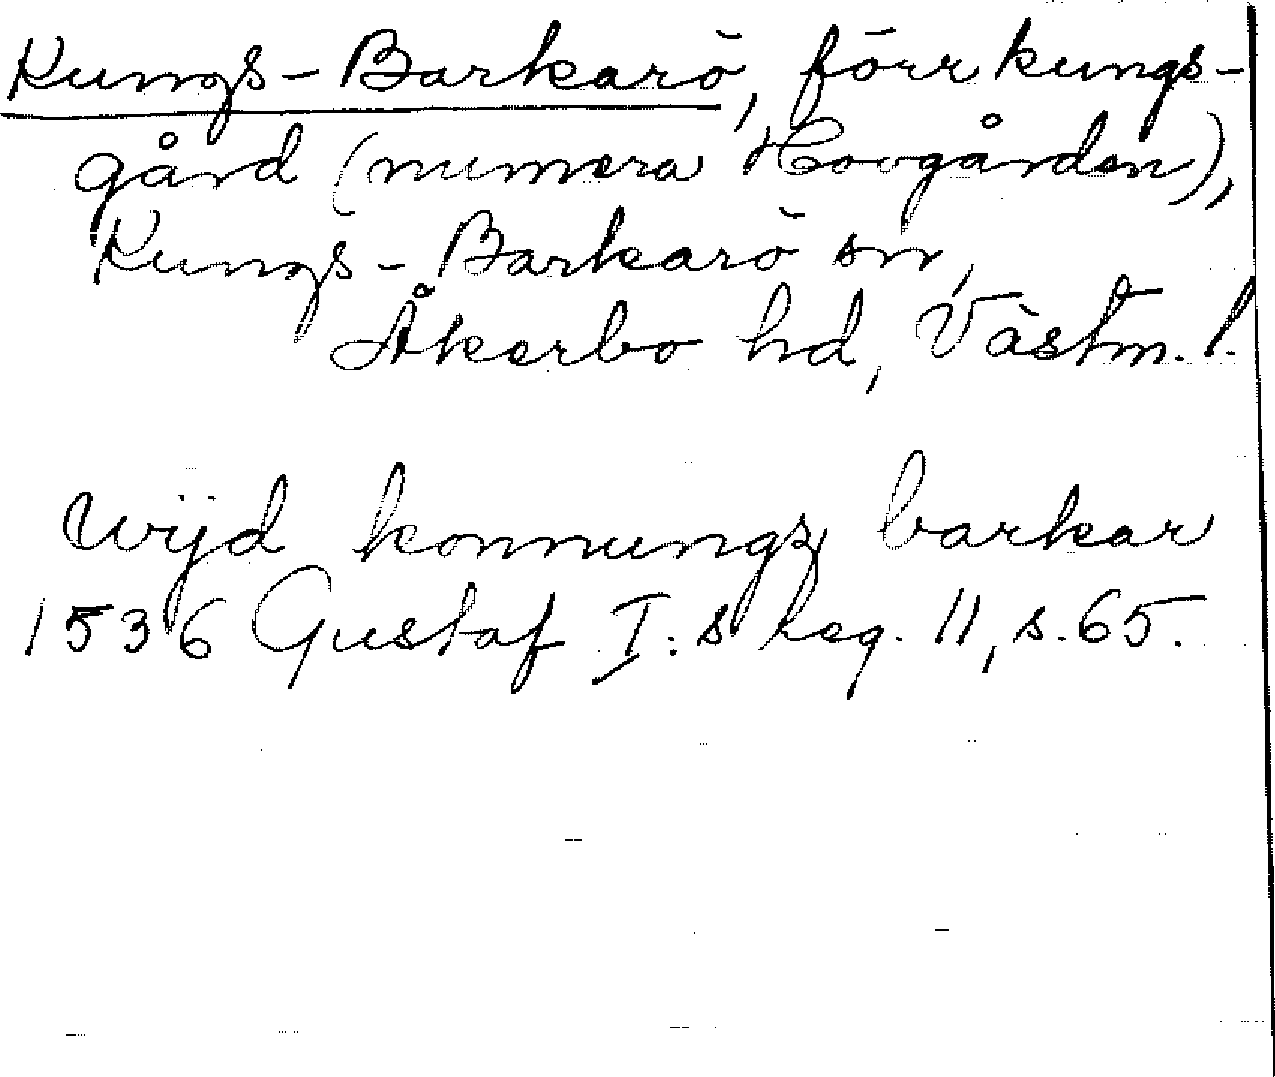 Kungs-Barkarö, förr kungs-
gård (numera Hovgården),
Kungs-Barkarö sn,
Åkerbo hd, Västm. l.
wijd konnungz barkar
1536 Gustaf I:s reg. 11, s. 65.